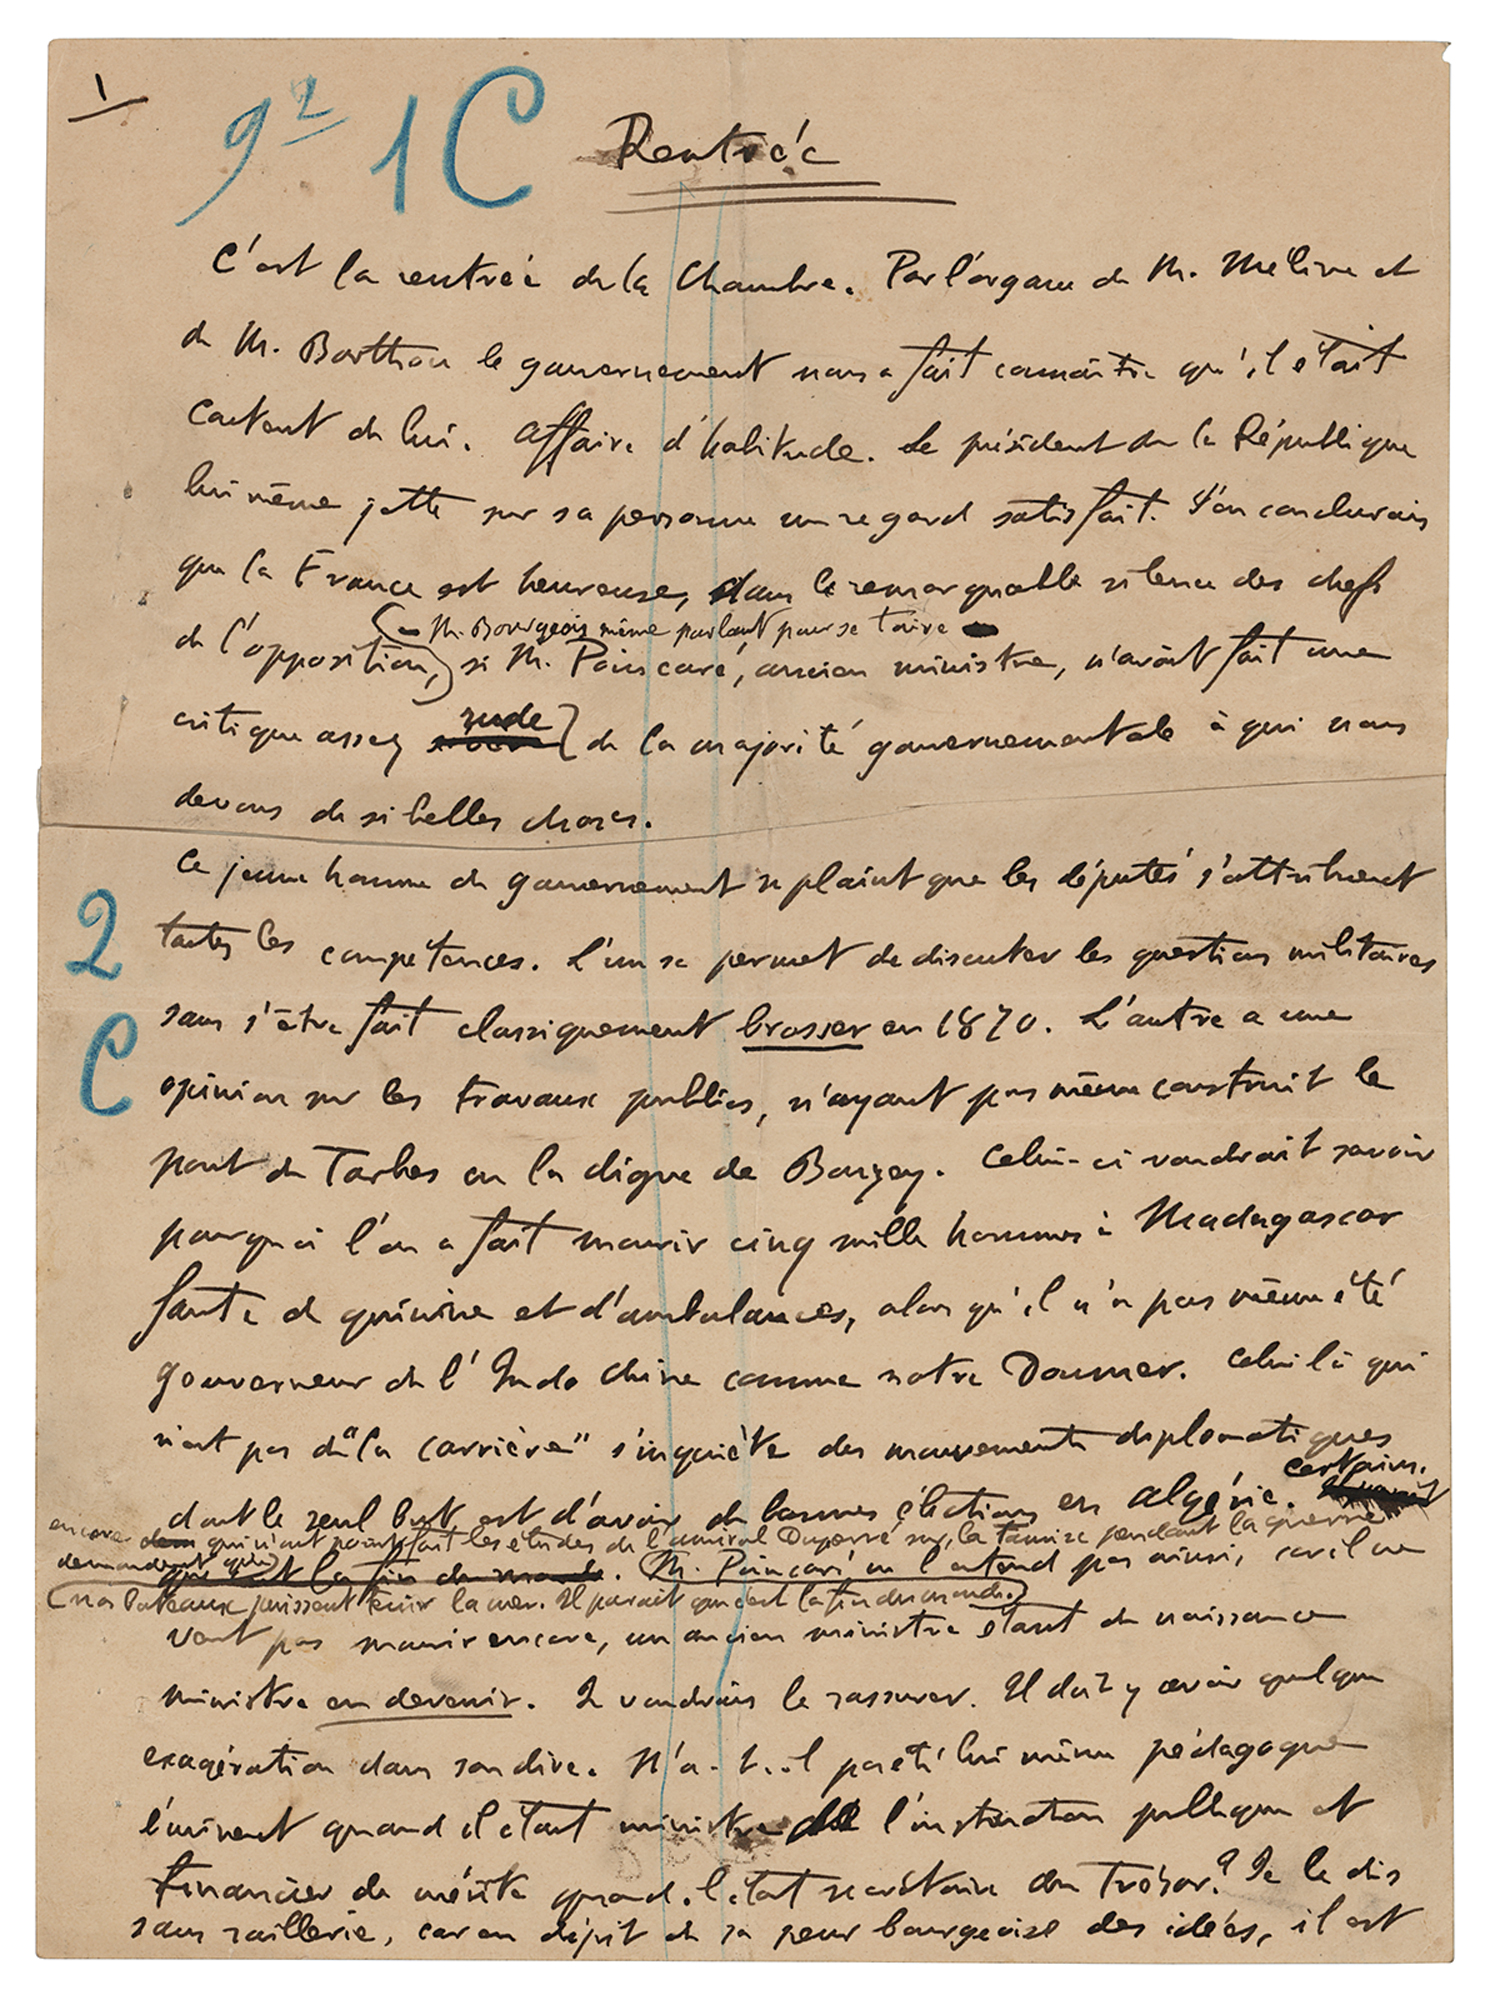 1
9² 1C
Rentrée
C'est la rentrée de la Chambre. Par l'organe de M. Méline et
de M. Barthou le gouvernement nous a fait connaître qu'il était
content de lui. Affaire d'habitude. Le président de la République
lui même jette sur sa personne un regard satisfait. J'en conclurais
que la France est heureuse, dans le remarquable silence des chefs
(- M. Bourgeois même parlant pour se taire -
de l'opposition,) si M. Poincaré, ancien ministre, n'avait fait une
rude
critique assez de la majorité gouvernementale à qui nous
devons de si belles choses.
2
C
Ce jeune homme de gouvernement se plaint que les députés s'attribuent
toutes les compétences. L'un se permet de discuter les questions militaires
sans s'être fait classiquement brosser en 1870. L'autre a une
opinion sur les travaux publics, n'ayant pas même construit le
pont de Tarbes ou la digue de Bouzey. Celui-ci voudrait savoir
pourquoi l'on a fait mourir cinq mille hommes à Madagascar
faute de quinine et d'ambulances, alors qu'il n'a pas même été
gouverneur de l'Indo Chine comme notre Doumer. Celui là qui
n'est pas de "la carrière" s'inquiète des mouvements diplomatiques
dont le seul but est d'avoir de bonnes élections en Algérie. certains.
encore dem qui n'ont point fait les études de l'amiral Duperré sur la tamise pendant la guerre
demandent que
que c'est la fin du monde. M. Poincaré ne l'entend pas ainsi, car il ne
(nos bateaux puissent tenir la mer. Il paraît que c'est la fin du monde.)
veut pas mourir encore, un ancien ministre étant de naissance
ministre en devenir. Je voudrais le rassurer. Il doit y avoir quelque
exagération dans son dire. N'a-t-il pas été lui même pédagogue
éminent quand il était ministre de l'instruction publique et
financier de mérite quand il était secrétaire du trésor? Je le dis
sans raillerie, car en dépit de sa peur bourgeoise des idées, il est